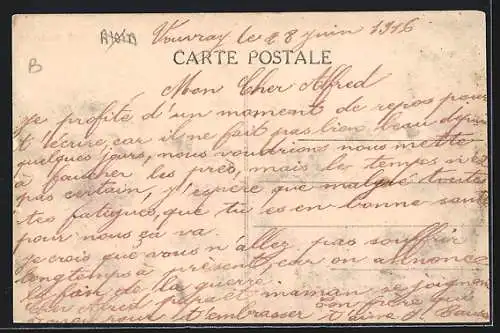 Vouvray le 28 juin 1916
B
CARTE POSTALE
Mon Cher Alfred
Je profite d'un moment de repos pour
t'écrire, car il ne fait pas bien beau depuis
quelques jours, nous voudrions nous mettre
à faucher les prés, mais le temps n'est
pas certain, j'espère que malgré toutes
tes fatigues, que tu es en bonne santé
pour nous ça va.
Je crois que vous n'allez pas souffrir
longtemps à présent, car on annonce
la fin de la guerre.
Cher Alfred papa et maman se joignent
pour t'embrasser Ton frère qui
t'aime